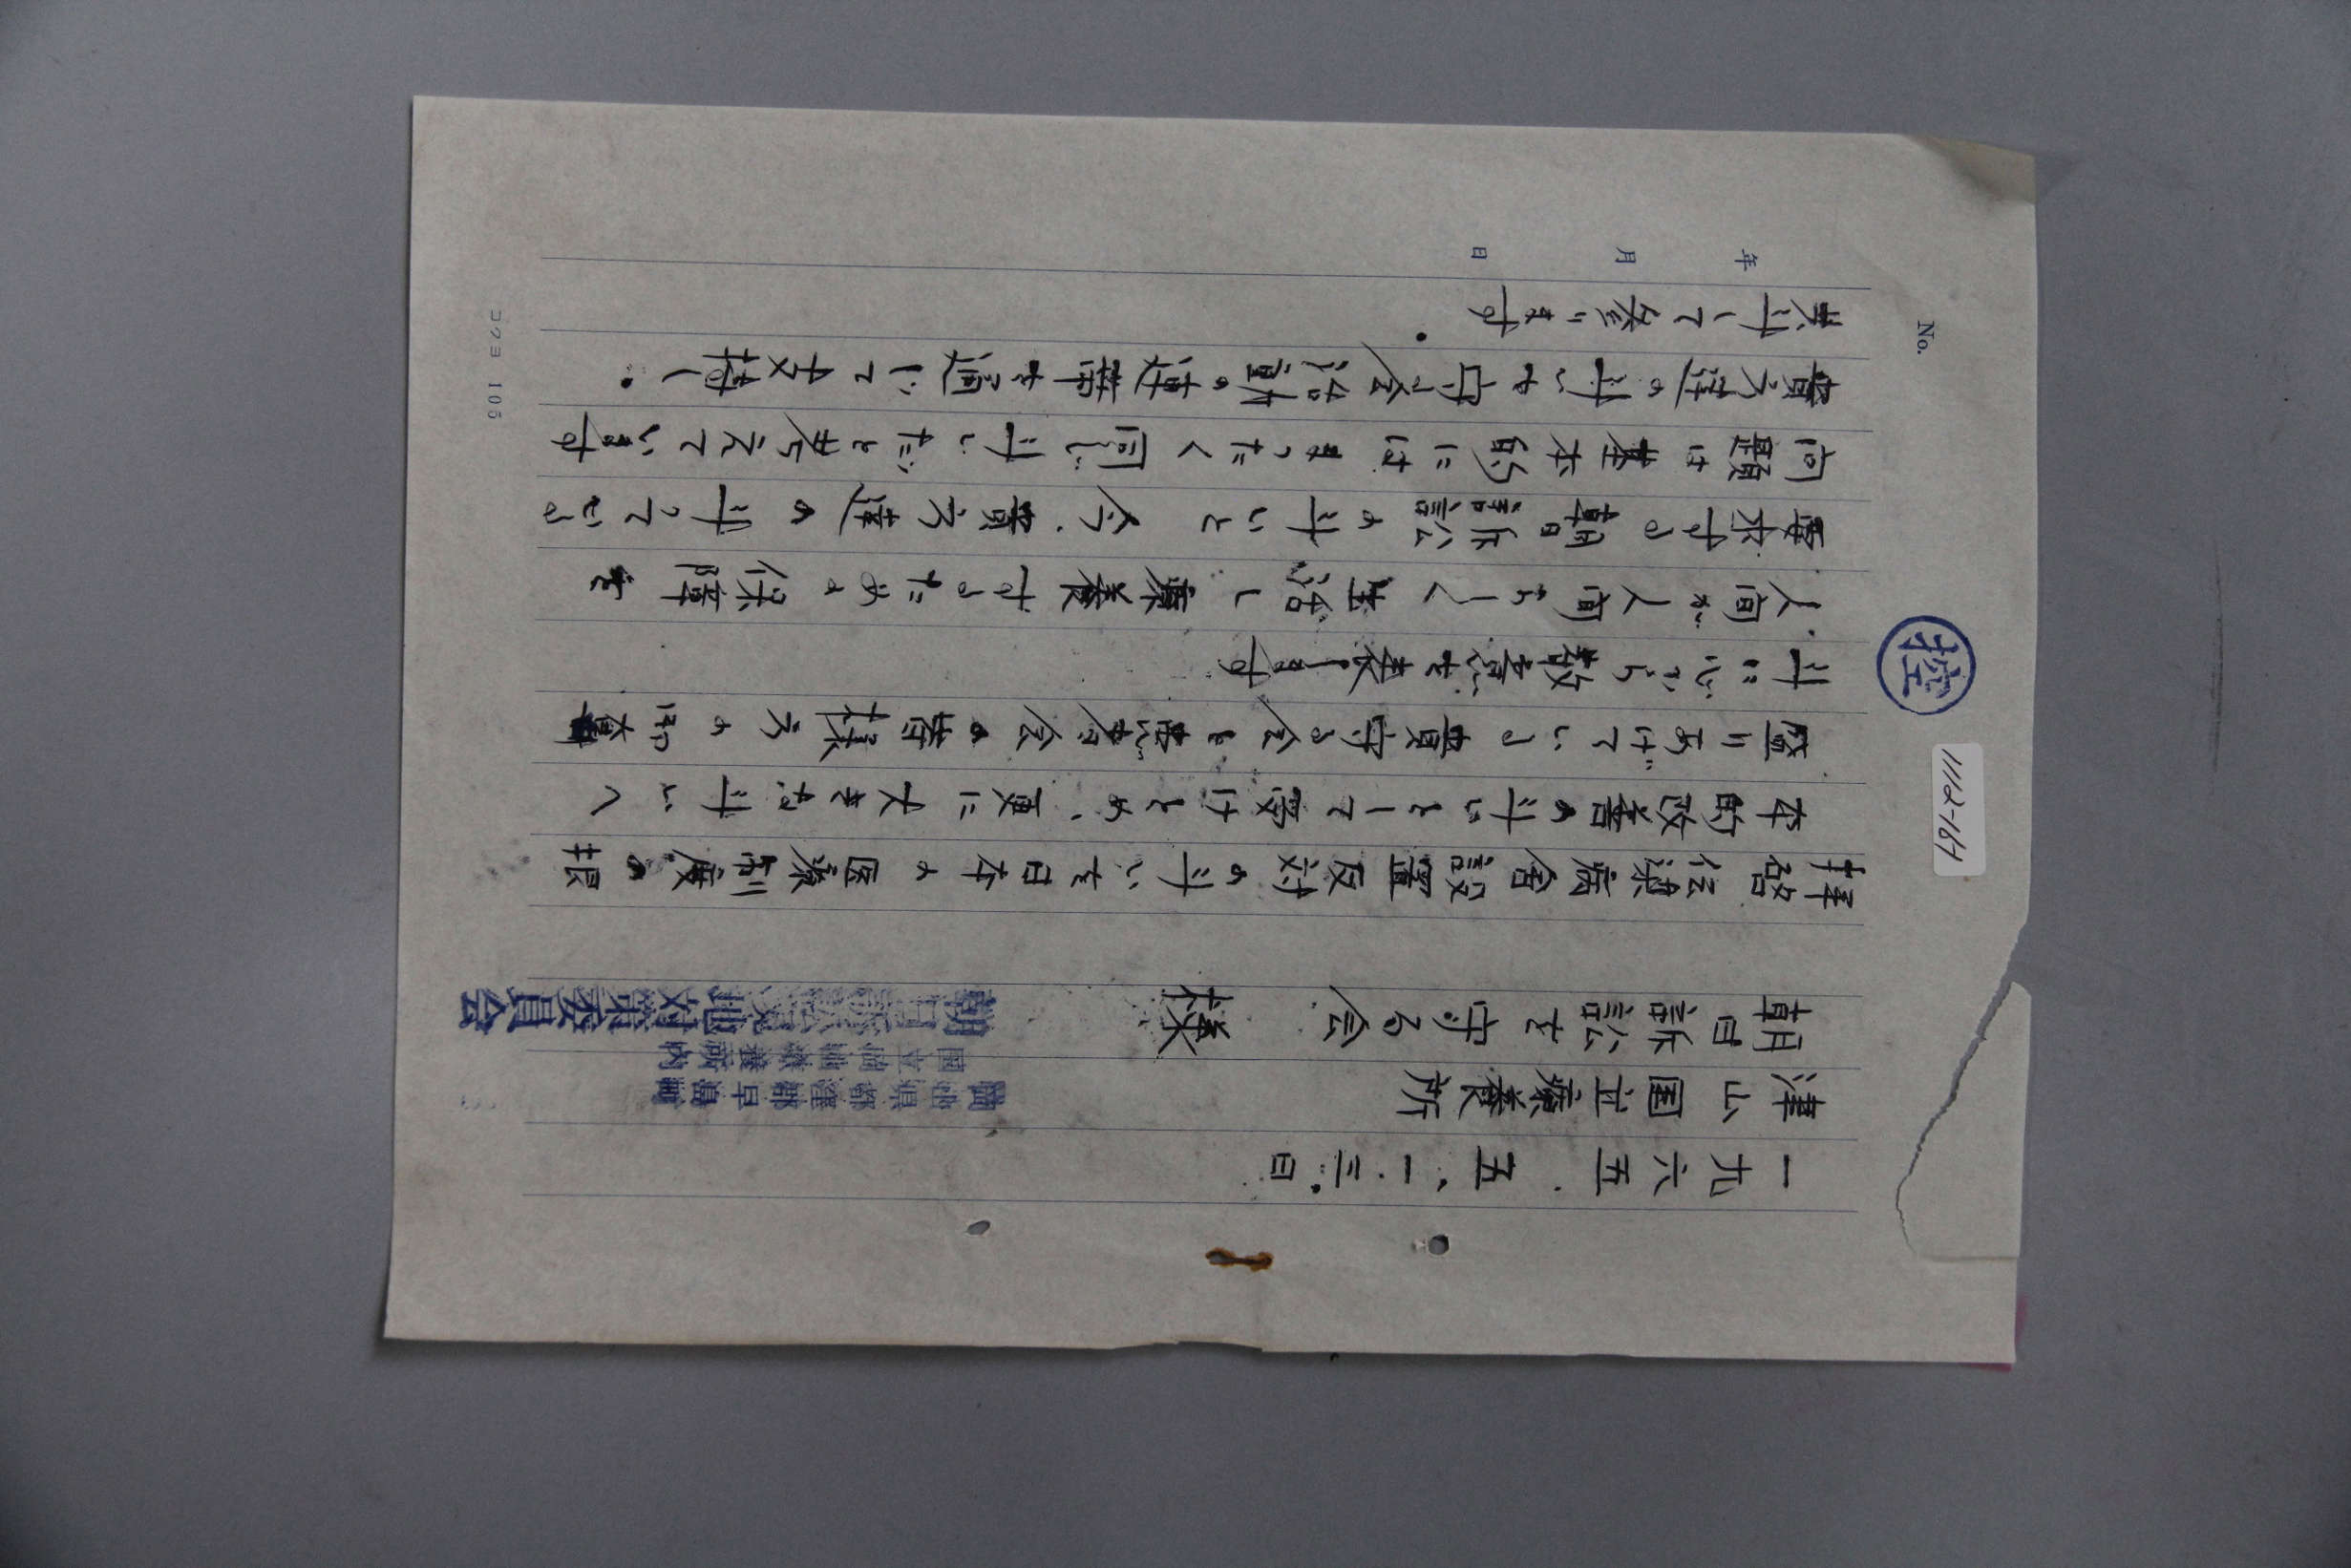 No.
控
1112-164
一九六五．五、一．三．日
津山国立療養所
朝日訴訟を守る会　様
岡山県都窪郡早島町
国立岡山療養所内
朝日訴訟現地対策委員会
拝啓 伝染病舎設置反対の斗いを日本の医療制度の根
本的改善の斗いとして受けとめ、更に大きな斗いへ
盛りあげている貴守る会と患者会の皆様方の御奮
斗に心から敬意を表します
人間が人間らしく生活し、療養するための保障を
要求する朝日訴訟の斗いと 今、貴方達の斗っている
問題は基本的にはまったく同じ斗いだと考えています
貴方達の斗いを守る会活動の連帯を通じて支持し。
共斗して参ります．
年　月　日
コクヨ 105